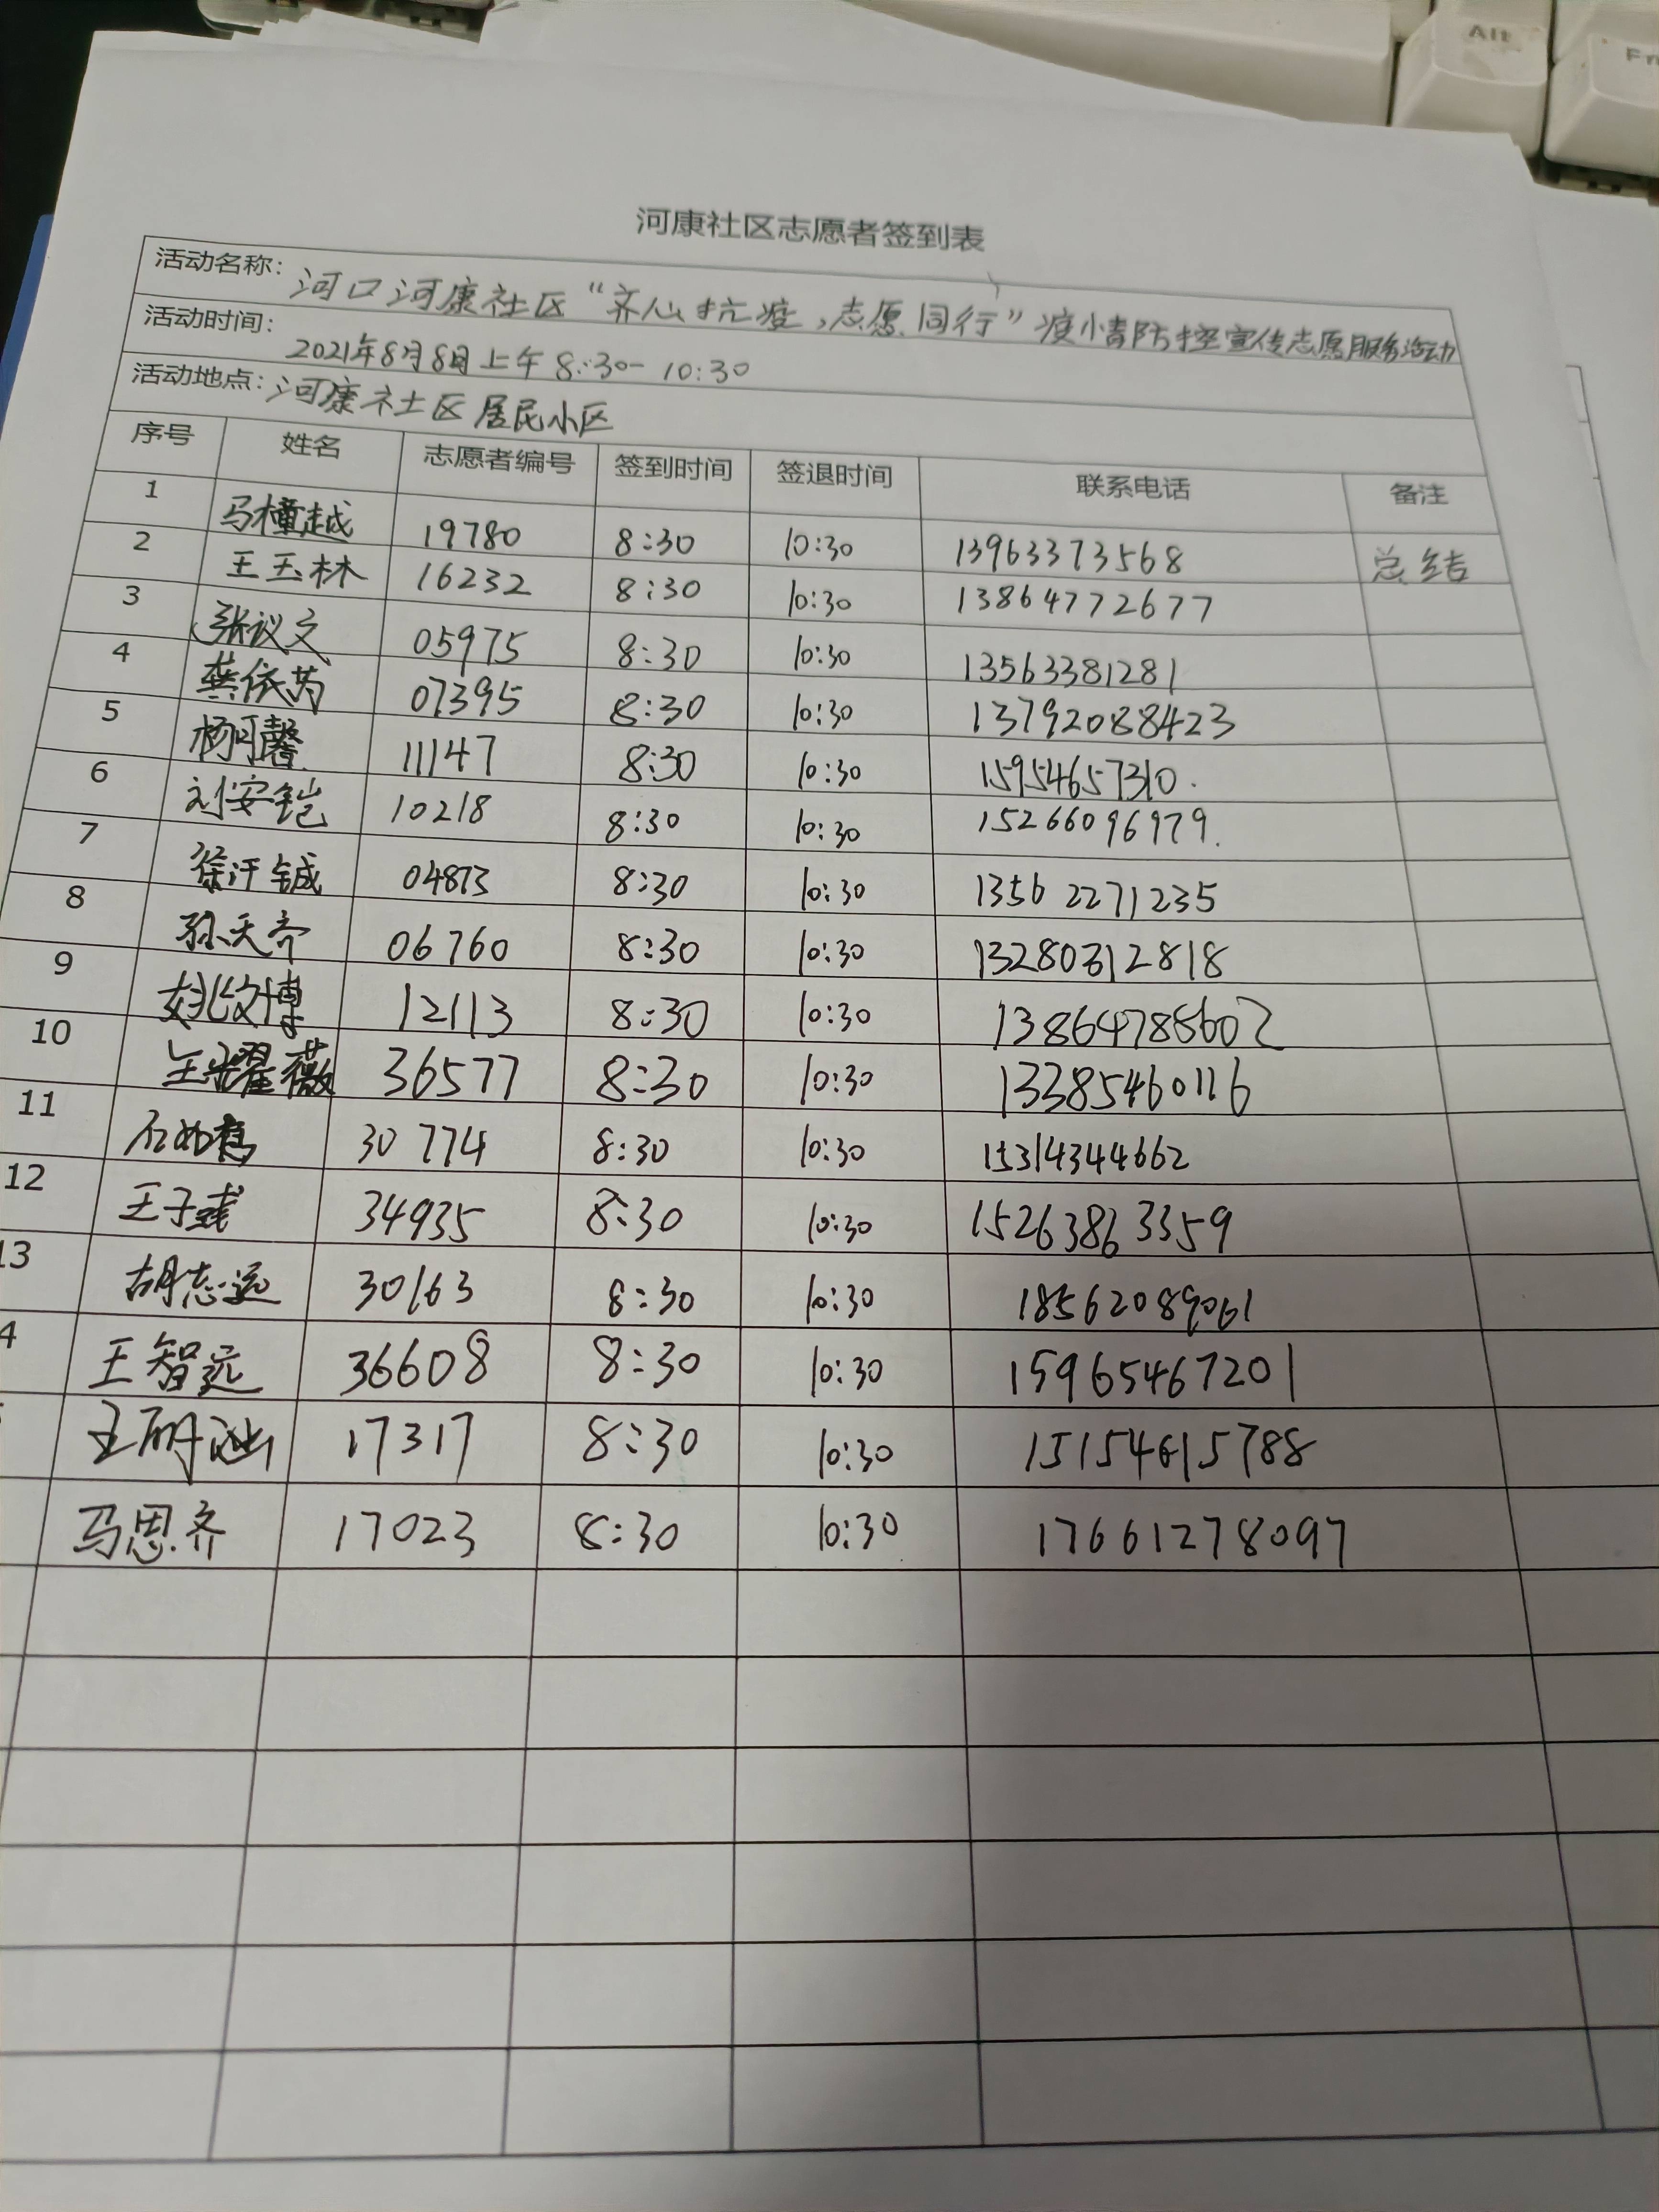 Alt
Fn
河康社区志愿者签到表
活动名称: 河口河康社区“齐心抗疫,志愿同行”疫情防控宣传志愿服务活动
活动时间: 2021年8月8日上午8:30-10:30
活动地点: 河康社区居民小区
序号 姓名 志愿者编号 签到时间 签退时间 联系电话 备注
1 马橦越 19780 8:30 10:30 13963373568 总结
2 王玉林 16232 8:30 10:30 13864772677
3 张议文 05975 8:30 10:30 13563381281
4 龚依芮 07395 8:30 10:30 13792088423
5 杨可馨 11147 8:30 10:30 15954657310.
6 刘安铠 10218 8:30 10:30 15266096979.
7 徐汗铖 04873 8:30 10:30 1356 2271235
8 孙天齐 06760 8:30 10:30 13280312818
9 姚汶博 12113 8:30 10:30 13864785602
10 36577 8:30 10:30 13385460116
11 30774 8:30 10:30 15314344662
12 王子 34935 8:30 10:30 15263863359
13 胡志远 30163 8:30 10:30 18562089061
4 王智远 36608 8:30 10:30 15965467201
王 17317 8:30 10:30 15154615788
马思齐 17023 8:30 10:30 17661278097